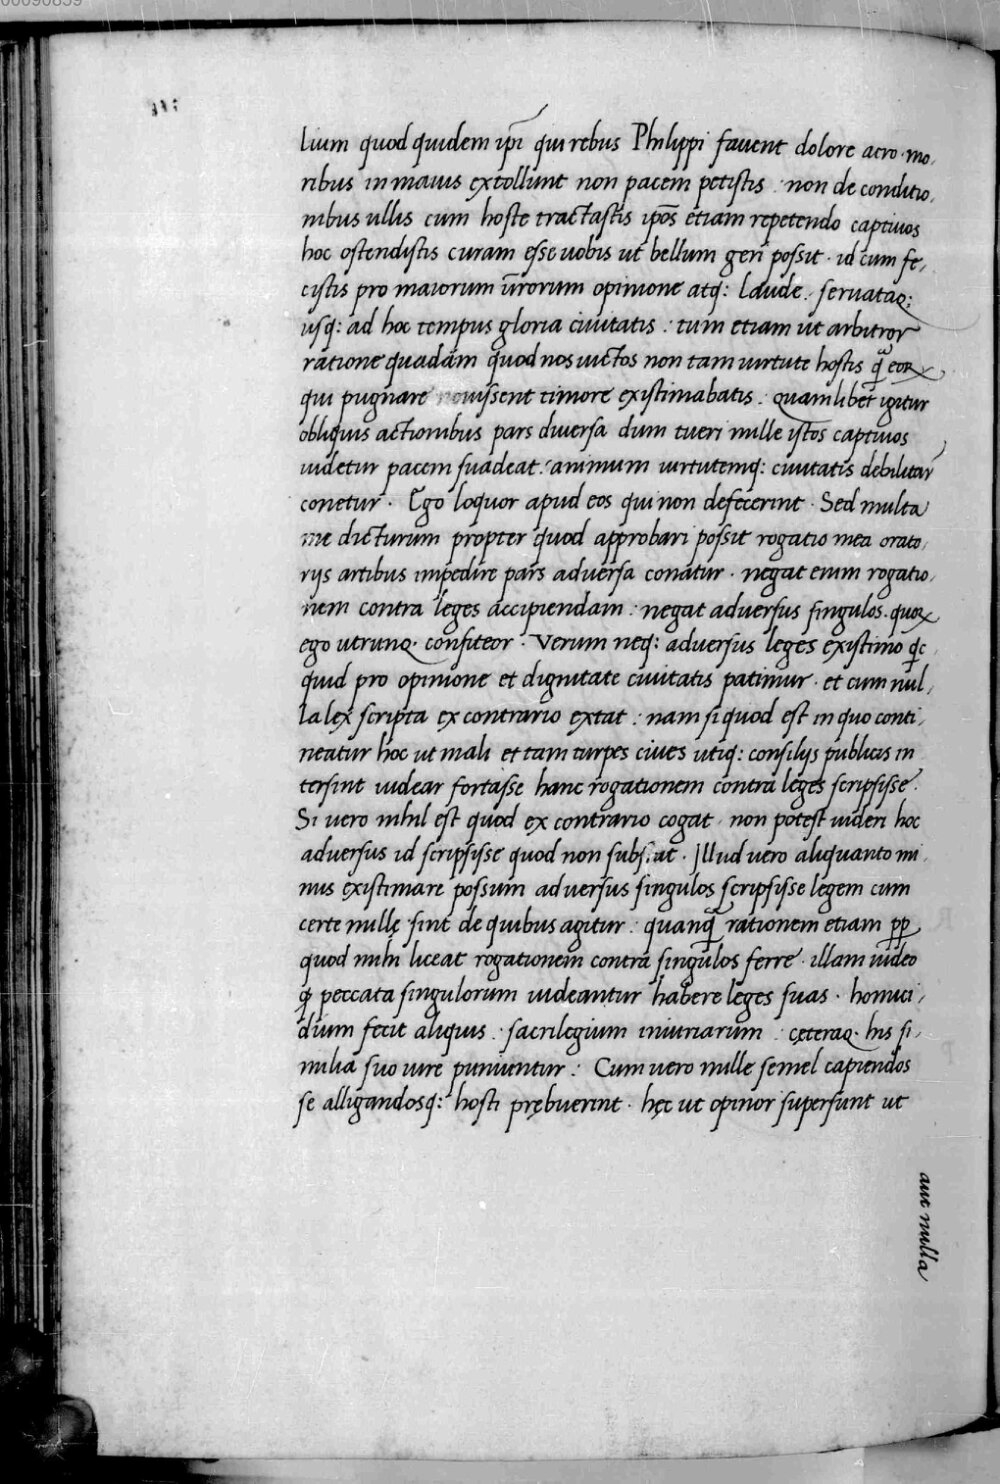 00090859
lium quod quidem ipsi̅ qui rebus Philippi fauent dolore acro · mo,
ribus in maius extollunt non pacem petistis : non de conditio,
nibus ullis cum hoste tractastis ip̅os etiam repetendo captiuos
hoc ostendistis curam esse uobis ut bellum geri possit · id cum fe,
cistis pro maiorum ur̅orum opinione atq: laude · seruataq:
usq: ad hoc tempus gloria ciuitatis : tum etiam ut arbitror
ratione quadam quod nos uictos non tam uirtute hostis q̅ eoꝝ
qui pugnare nouissent timore existimabatis : quamlibet igitur
obliquis actionibus pars diuersa dum tueri mille istos captiuos
uidetur pacem suadeat : animum uirtutemq: ciuitatis debilitar̅
conetur · Ego loquor apud eos qui non defecerint · Sed multa
me dicturum propter quod approbari possit rogatio mea orato,
rijs artibus impedire pars aduersa conatur · negat enim rogatio,
nem contra leges accipiendam : negat aduersus singulos · quoꝝ
ego utrunq· confiteor : Verum neq: aduersus leges existimo q̅c
quid pro opinione et dignitate ciuitatis patimur · et cum nul,
la lex scripta ex contrario extat : nam si quod est in quo conti,
neatur hoc ut mali et tam turpes ciues utiq: consilijs publicis in
tersint uidear fortasse hanc rogationem contra leges scripsisse ·
Si uero nihil est quod ex contrario cogat · non potest uideri hoc
aduersus id scripsisse quod non subsit · Illud uero aliquanto mi,
nus existimare possum aduersus singulos scripsisse legem cum
certe nullę sint de quibus agitur : quanq̅ rationem etiam p̲p̲
quod mihi liceat rogationem contra singulos ferre · illam uideo
ꝙ peccata singulorum uideantur habere leges suas · homici,
dium fecit aliquis : sacrilegium iniuriarum : cęteraq· his si,
milia suo iure puniuntur : Cum uero mille semel capiendos
se alligandosq: hosti prębuerint · hęc ut opinor supersunt ut
aut nulla